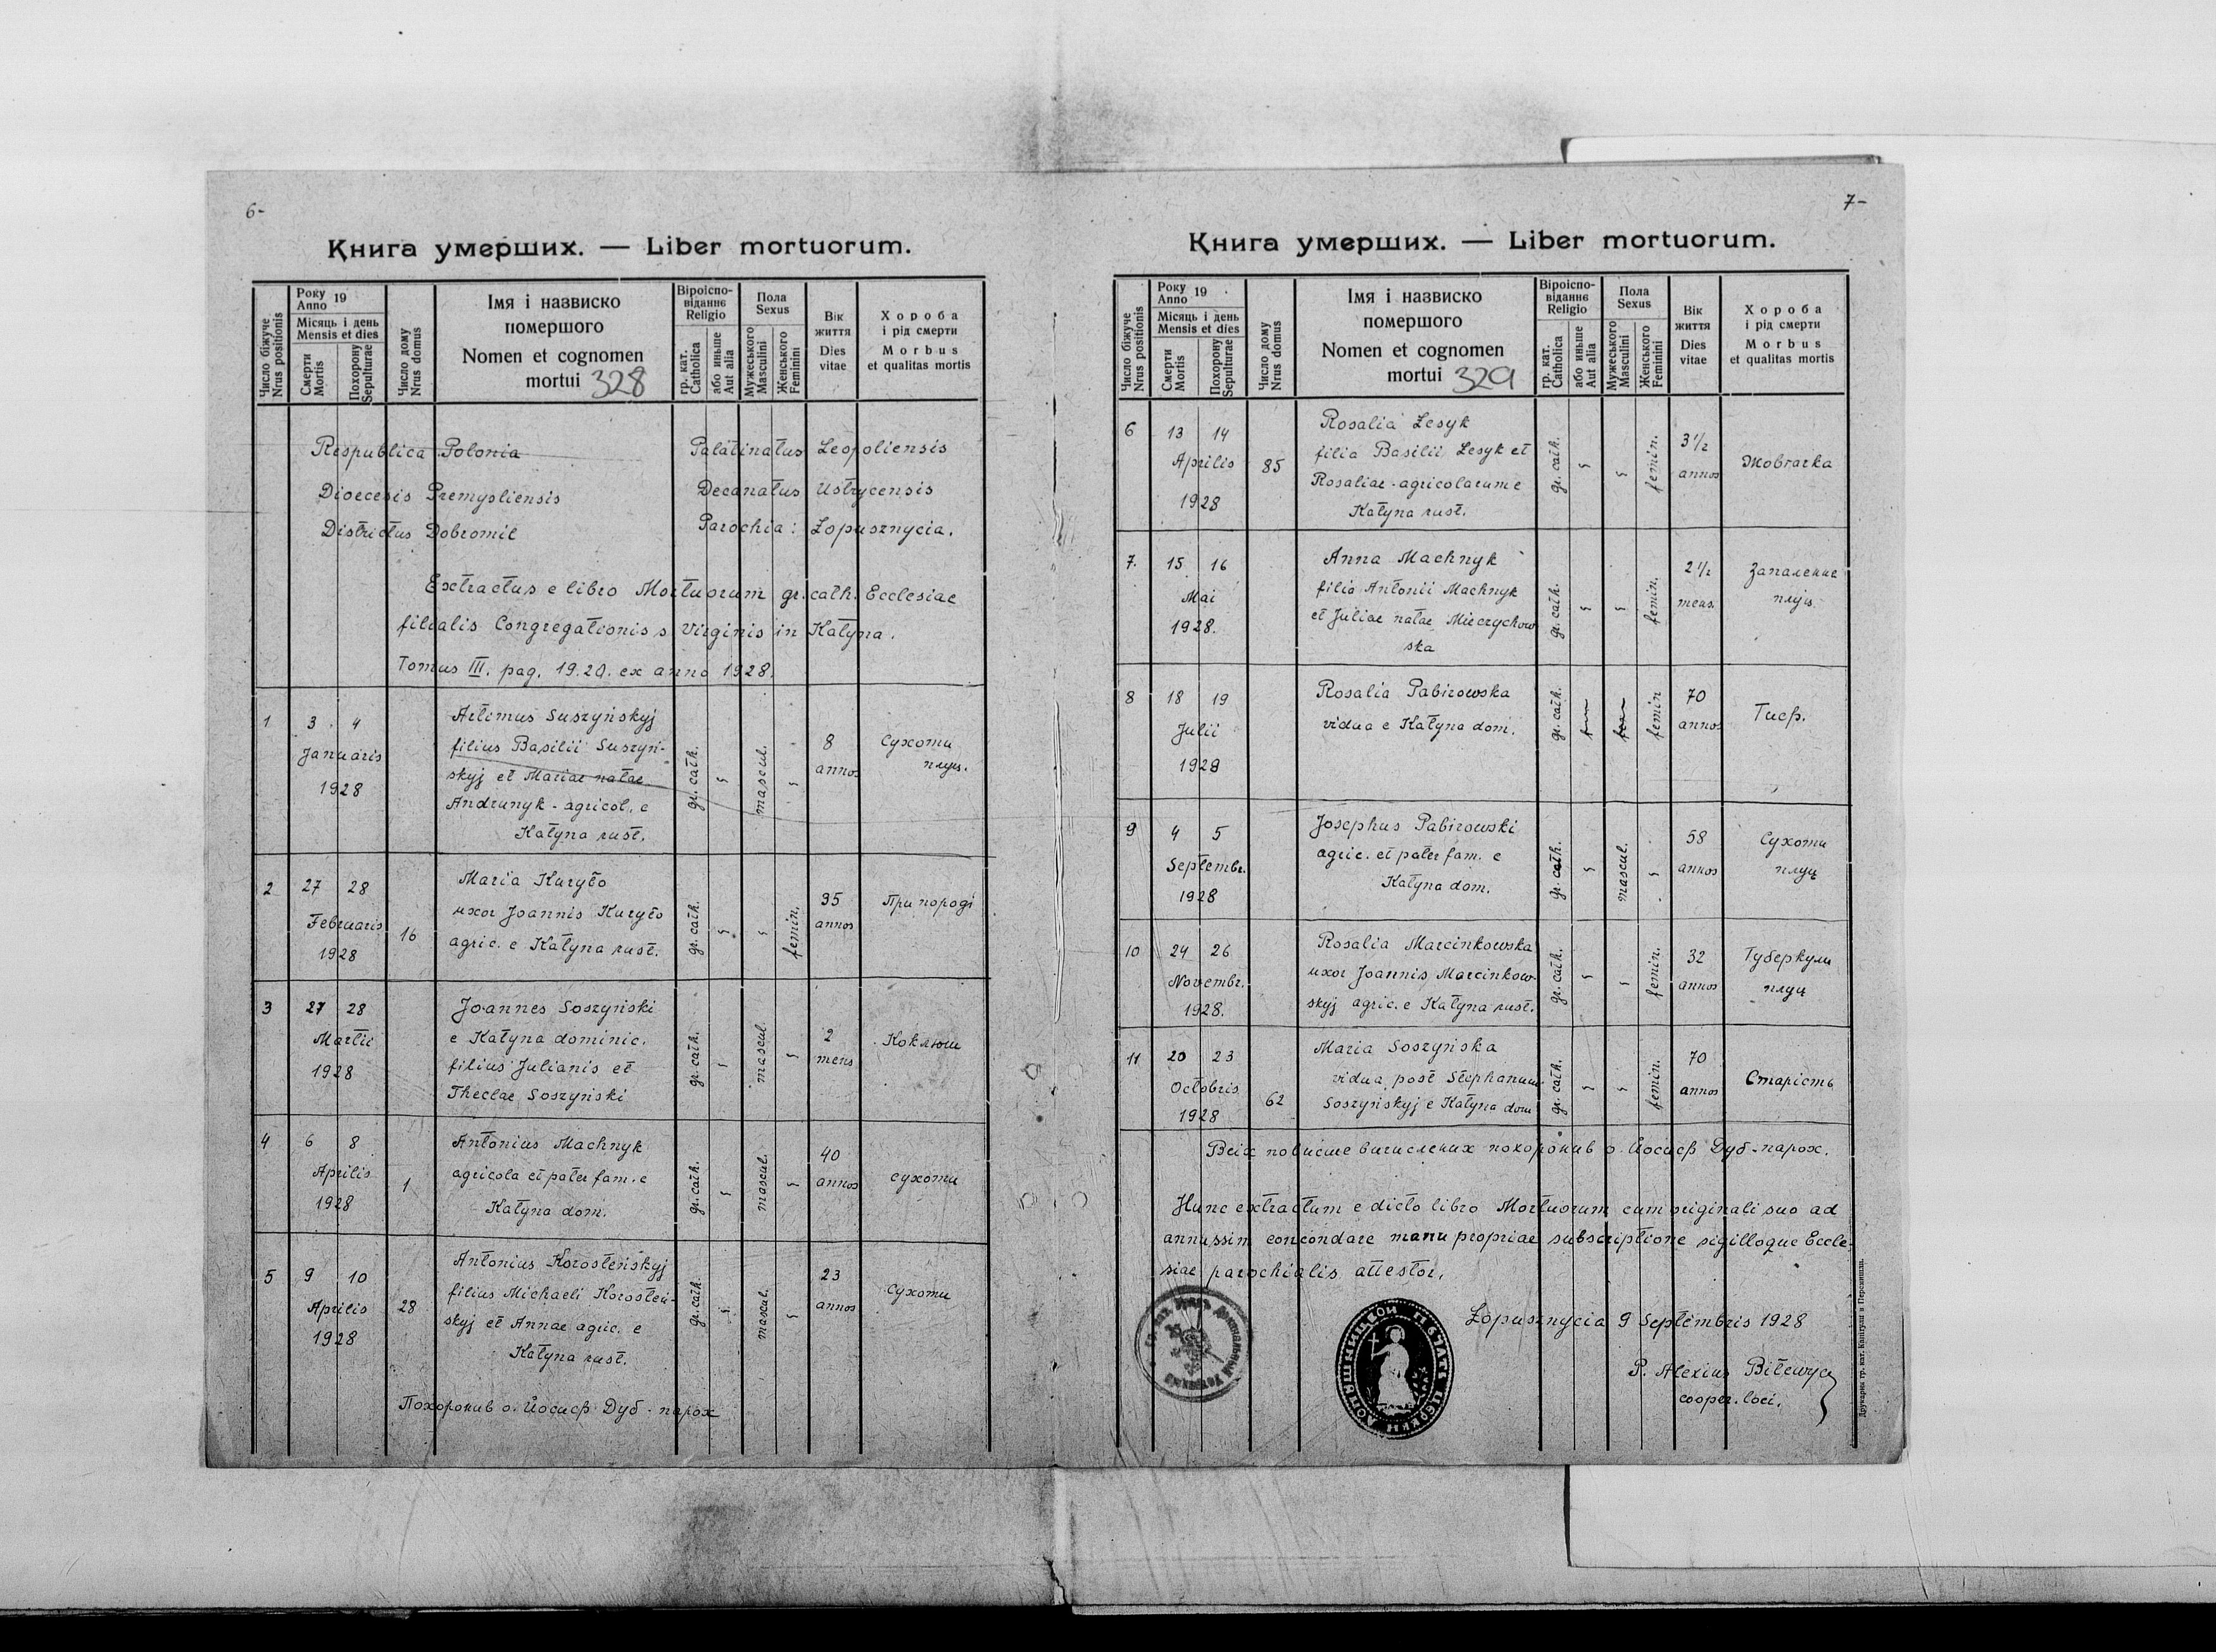 6-
Книга умерших. — Liber mortuorum.
Число біжуче
Nrus positionis
Року
Anno 19
Місяць і день
Mensis et dies
Смерти
Mortis
Похорону
Sepulturae
Число дому
Nrus domus
Імя і назвиско
помершого
Nomen et cognomen
mortui 328
Віроіспо-
віданнє
Religio
гр. кат.
Catholica
або иньше
Aut alia
Пола
Sexus
Мужеського
Masculini
Женського
Feminini
Вік
життя
Dies
vitae
Хороба
і рід смерти
Morbus
et qualitas mortis
Respublica Polonia Palatinatus Leopoliensis
Dioecesis Premysliensis Decanatus Ustrycensis
Districtus Dobromil Parochia: Łopusznycia.
Extractus e libro Mortuorum gr. cath. Ecclesiae
filialis Congregationis s. Virginis in Katyna.
Tomus III. pag. 19.20. ex anno 1928.
1 3 4
Januaris
1928
Artimus Suszyńskyj
filius Basilii Suszyń-
skyj et Mariae natae
Andrunyk - agricol. e
Katyna rust.
gr. cath.
mascul.
8
annos
Сухоти
плуц.
2 27 28
Februaris
1928
16
Maria Kuryło
uxor Joannis Kuryło
agric. e Katyna rust.
gr. cath.
femin.
35
annos
При породі
3 27 28
Martii
1928
Joannes Soszyński
e Katyna dominic.
filius Julianis et
Theclae Soszyński
gr. cath.
mascul.
2
mens
Коклюш
4 6 8
Aprilis
1928
1
Antonius Machnyk
agricola et pater fam. e
Katyna dom.
gr. cath.
mascul.
40
annos
сухоти
5 9 10
Aprilis
1928
28
Antonius Korosteńskyj
filius Michaeli Korosteń-
skyj et Annae agric. e
Katyna rust.
gr. cath.
mascul.
23
annos
сухоти
Похоронив о. Йосиф Дуб - парох
7-
Книга умерших. — Liber mortuorum.
Число біжуче
Nrus positionis
Року
Anno 19
Місяць і день
Mensis et dies
Смерти
Mortis
Похорону
Sepulturae
Число дому
Nrus domus
Імя і назвиско
помершого
Nomen et cognomen
mortui 329
Віроіспо-
віданнє
Religio
гр. кат.
Catholica
або иньше
Aut alia
Пола
Sexus
Мужеського
Masculini
Женського
Feminini
Вік
життя
Dies
vitae
Хороба
і рід смерти
Morbus
et qualitas mortis
6 13 14
Aprilis
1928
85
Rosalia Lesyk
filia Basilii Lesyk et
Rosaliae - agricolarum e
Katyna rust.
gr. cath.
femin.
3 1/2
annos
Жовтачка
7. 15 16
Mai
1928.
Anna Machnyk
filia Antonii Machnyk
et Juliae natae Mierzchow
ska
gr. cath.
femin.
2 1/2
mens.
Запаленнє
плуц.
8 18 19
Julii
1928
Rosalia Pabirowska
vidua e Katyna dom.
gr. cath.
femin
70
annos
Тиф.
9 4 5
Septembr.
1928
Josephus Pabirowski
agric. et pater fam. e
Katyna dom.
gr. cath.
mascul.
58
annos
Сухоти
плуц
10 24 26
Novembr.
1928.
Rosalia Marcinkowska
uxor Joannis Marcinkow-
skyj agric. e Katyna rust.
gr. cath.
femin.
32
annos
Туберкули
плуц
11 20 23
Octobris
1928
62
Maria Soszyńska
vidua post Stephanum
Soszyńskyj e Katyna dom
gr. cath.
femin.
70
annos
Старість
Всіх повисше вичислених похоронив о. Йосиф Дуб - парох.
Hunc extractum e dicto libro Mortuorum cum originali suo ad
annussim concondare manu propriae subscriptione sigilloque Eccle-
siae parochialis attestor.
Łopusznycia 9 Septembris 1928
P. Alexius Bilewycz
cooper. loci.
ПЕЧАТЬ ЦЕРКВИ
Друкарня гр. кат. Капітули в Перемишли.